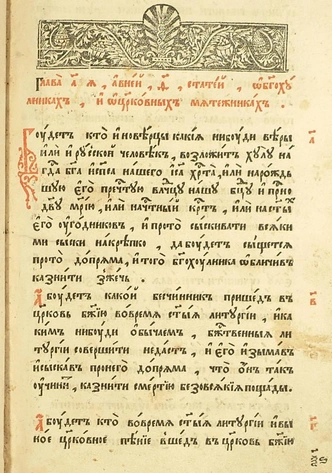 Глава а҃ я҆, а҆вней, д҃, статїй, ѡ҆богоху
лникахъ, и҆ ѡ҆церковныхъ мѧтежникахъ.
Боудетъ кто̀ и҆новѣрцы какїѧ нибоуди вѣры
и҆лѝ и҆ роускои человѣкъ, возложитъ хулꙋ на
гд҃а бг҃а и҆ сп҃са нашего і҆с҃а хр҃та̀, и҆лѝ нарождь
шꙋю є҆го̀ преч҃тꙋю влч҃цꙋ нашꙋ бц҃ꙋ и҆ прн҃о
дв҃ꙋ мр҃їю, и҆лѝ начтныи кр҃тъ, и҆лѝ на ст҃ы́
є҆го̀ оу҆годниковъ, и҆ прото̀ сыскивати всѧки
ми сыски накрѣпко, да боудетъ сыщетсѧ
прото̀ допрѧма, и҆ того̀ бг҃охоулника ѡ҆бличивъ
казнити зжечь.
А҆ боудетъ какои бесчинникъ пришедъ въ
цр҃ковь бж҃їю вовремѧ ст҃ыѧ литоргїи, и҆ ка
кимъ нибоуди ѡ҆бычаемъ, бж҃твенныѧ ли
тꙋргїи совершити недастъ, и҆ є҆го̀ и҆зымавъ
и҆ сыскавъ пронего̀ допрѧма, что̀ ѡ҆нъ такъ
оу҆чинитъ, казнити смертїю безовсѧкїѧ пощады.
А҆ боудетъ кто̀ вовремѧ ст҃ыѧ литоргїи и҆ вы
ное церковное пѣнїе вшедъ въ цр҃ковь бж҃їю